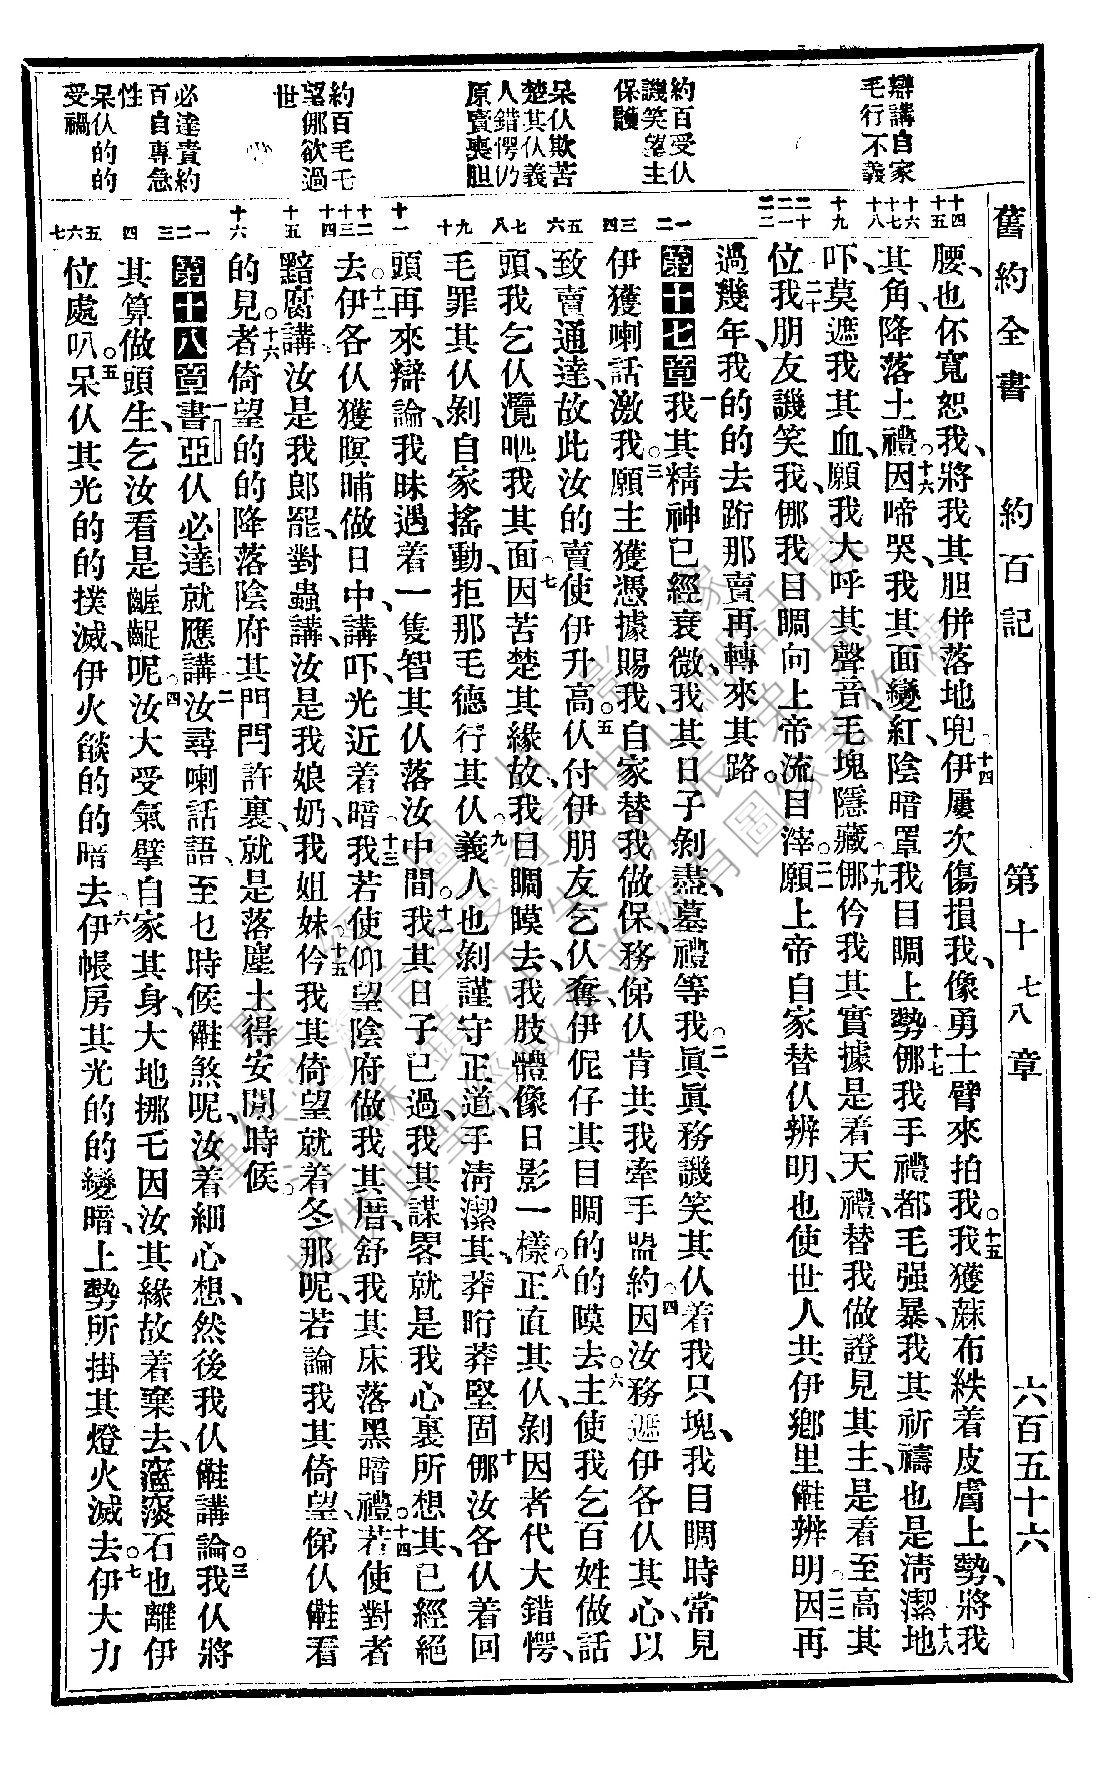 舊約全書　約百記　第十七八章　六百五十六
辯講自家
毛行不義
約百受仫
譏笑望主
保護
呆仫欺苦
楚其仫義
人錯愕仍
原賣喪胆
約百毛毛
望㑚欲過
世
必達責約
百自專急
性
呆仫的的
受禍
十四 十五 十六 十七 十八 十九 二十 二一 二二
一 二 三 四 五 六 七 八 九 十 十一 十二 十三 十四 十五 十六
一 二 三 四 五 六 七
腰、也伓寬恕我、將我其胆併落地兜伊屢次傷損我、像勇士臂來拍我。我獲蔴布紩着皮膚上勢、將我
其角、降落土禮。因啼哭、我其面變紅、陰暗罩我目睭上勢㑚我手禮都毛强暴、我其祈禱也是淸潔地
吓、莫遮我其血、願我大呼其聲音毛塊隱藏㑚伱我其實據是着天、禮替我做證見其主、是着至高其
位我朋友譏笑我、㑚我目睭向上帝流目滓願上帝自家替仫辨明、也使世人共伊鄉里𠆧辨明因再
過幾年、我的的去跡那賣再轉來其路。
第十七章 我其精神已經衰微、我其日子剝盡、墓禮等我。眞眞務譏笑其仫着我只塊、我目睭時常見
伊獲喇話激我。願主獲憑據賜我、自家替我做保、務俤仫肯共我牽手盟約因汝務遮伊各仫其心、以
致賣通達、故此汝的賣使伊升高。仫付伊朋友乞仫奪、伊伲仔其目睭的的瞙去。主使我乞百姓做話
頭、我乞仫灠𠯗我其面因苦楚其緣故、我目睭瞙去、我肢體像日影一樣正直其仫、剝因者代大錯愕、
毛罪其仫、剝自家搖動、拒那毛德行其仫義人也剝謹守正道、手淸潔其、莽珩莽堅固㑚汝各仫着回
頭再來辯論、我昧遇着一隻智其仫落汝中間。我其日子已過、我其謀畧就是我心裏所想其、已經絕
去。伊各仫獲暝晡做日中、講吓、光近着暗我若使仰望陰府做我其厝、舒我其床落黑暗禮。若使對者
黯腐講、汝是我郞罷、對蟲講、汝是我娘奶、我姐妹伱我其倚望就着冬那呢、若論我其倚望、俤仫𠆧看
的見。者倚望的的降落陰府其門閂許裏、就是落塵土得安閒時候。
第十八章 書亞仫必達就應講汝尋喇話語、至乜時候𠆧煞呢、汝着細心想、然後我仫𠆧講論。我仫將
其算做頭生、乞汝看是齷齪呢汝大受氣擘自家其身、大地挪毛因汝其緣故着棄去、𥧌𥧌石也離伊
位處叭。呆仫其光的的撲滅、伊火燄的的暗去伊帳房其光的的變暗、上勢所掛其燈火滅去。伊大力